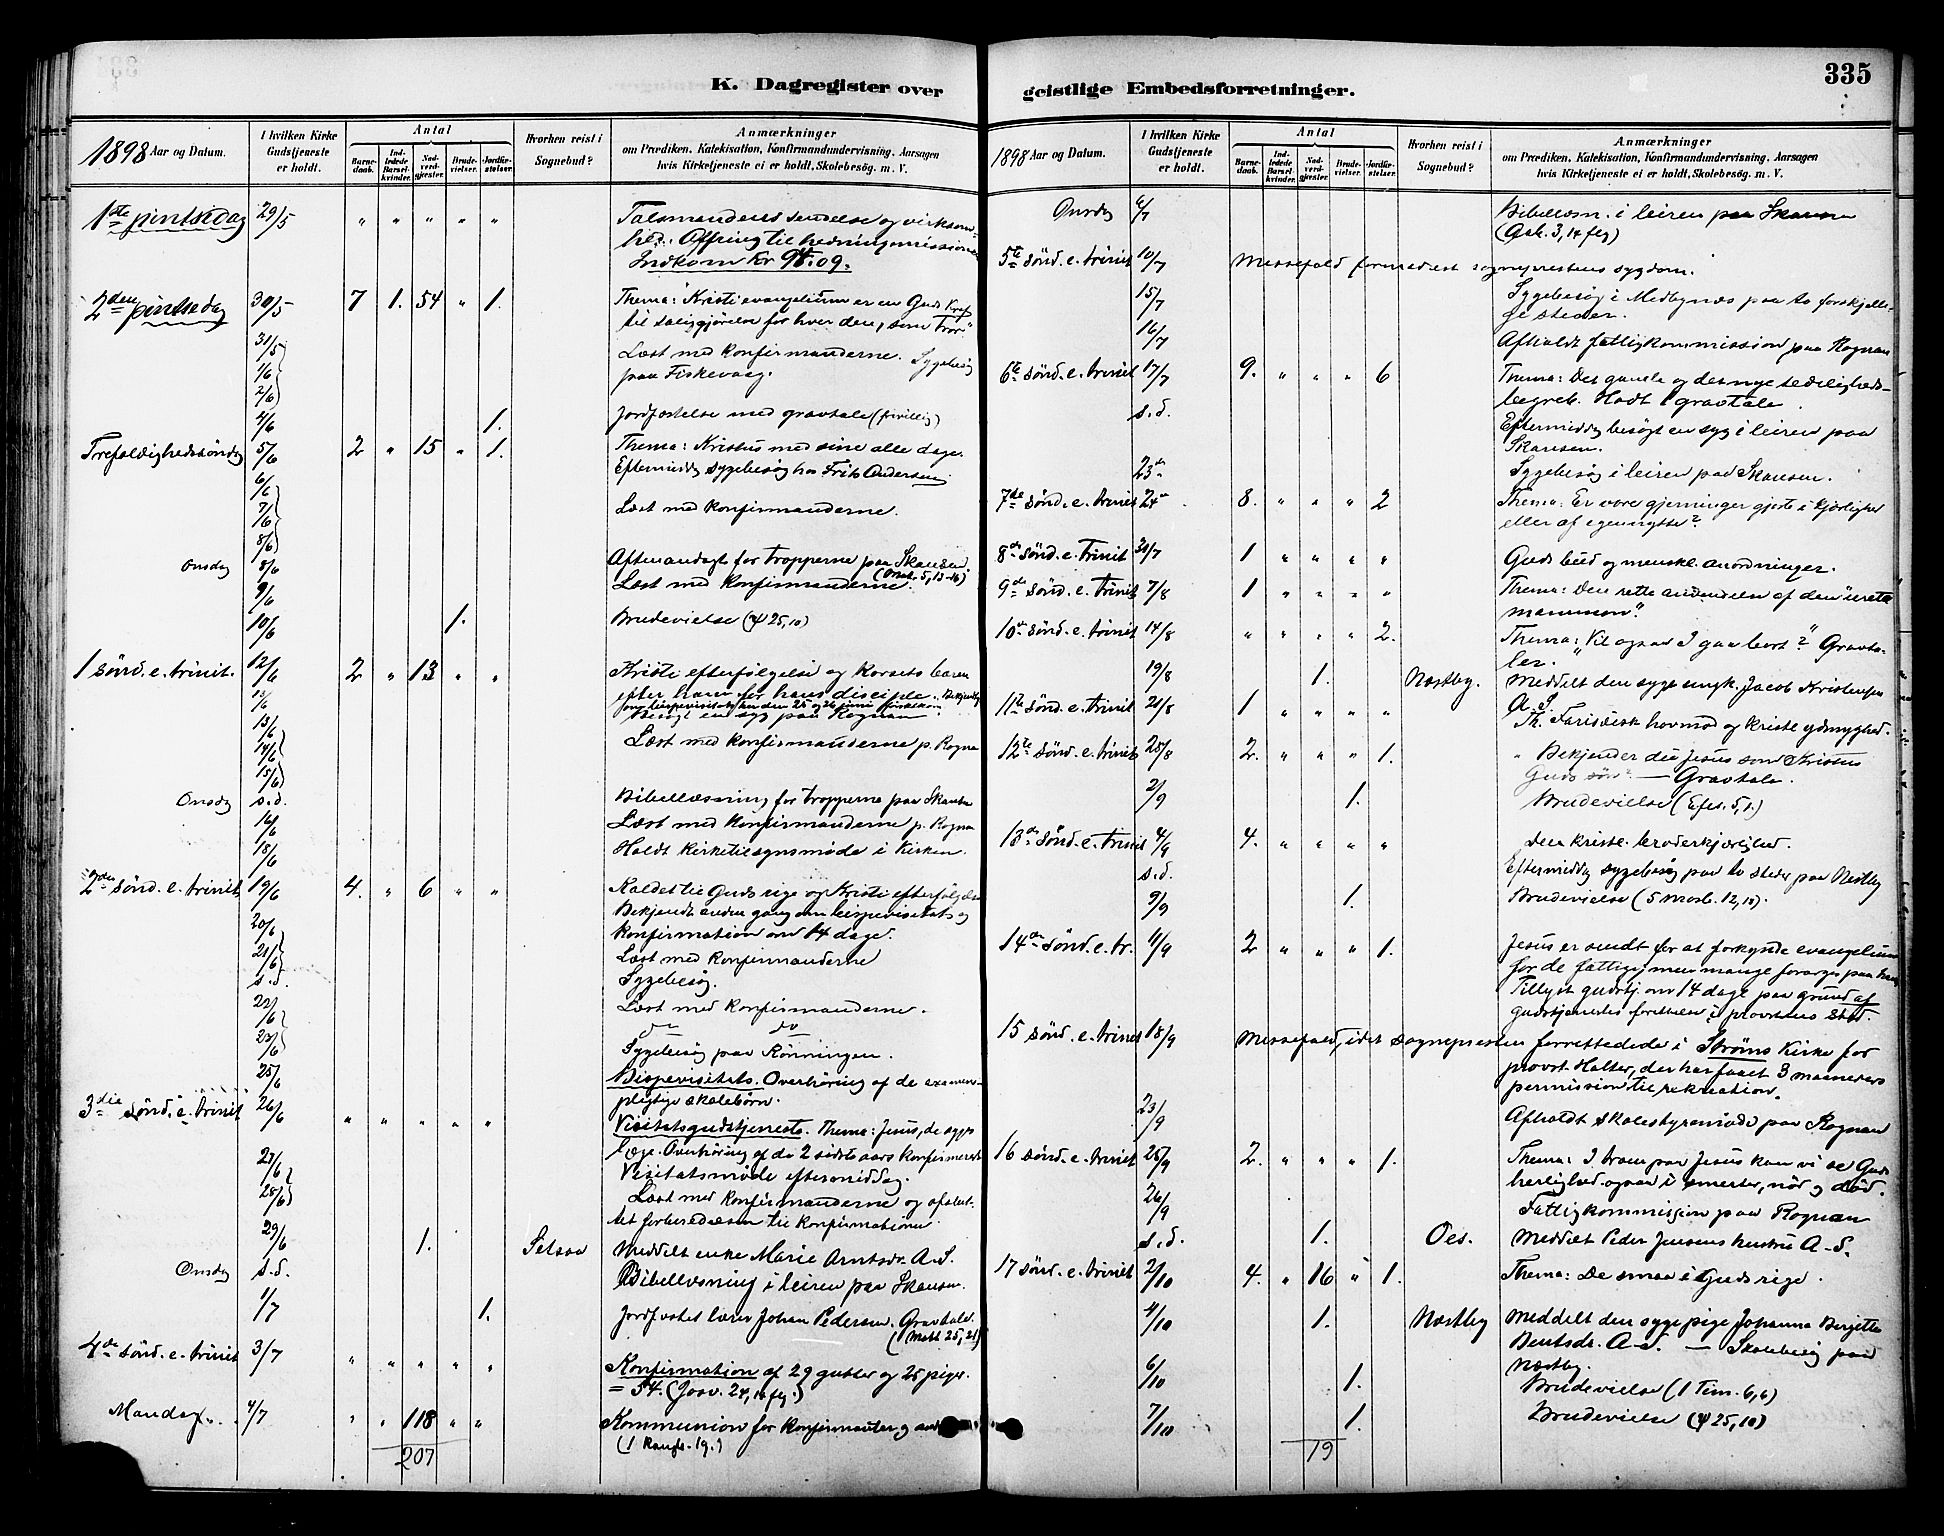 K. Dagregister over
1898 Aar og Datum.
I hvilken Kirke Gudstjeneste er holdt.
Antal
Barnedaab.
Indledede Barselkvinder.
Nadverdgjester.
Brudevielser.
Jordfæstelser.
Hvorhen reist i Sognebud?
Anmærkninger
om Prædiken, Katekisation, Konfirmandundervisning, Aarsagen
hvis Kirketjeneste ei er holdt, Skolebesøg. m. V.
1ste pintsedag 29/5 " " " " " Talsmandens sendelse og virksom-
hed. Offring til hedningemissionen
Indkom Kr 94.09.
2den pintsedag 30/5 7 1. 54 " 1. Thema: Kristi evangelium er en Guds Kraft
til saliggjörelse for hver den, som tror"
31/5 Læst med konfirmanderne. Sygebesög
1/6 paa Fiskevaag.
2/6
4/6 1. Jordfæstelse med gravtale (frivillig)
Trefoldighedssöndag 5/6 2 " 15 " 1. Thema: Kristus med sine alle dage.
Eftermiddag sygebesög hos Frits Andersen
6/6
7/6 Læst med konfirmanderne.
8/6
Onsdag 8/6 Aftenandagt for tropperne paa Skansen.
9/6 Læst med konfirmanderne.
10/6 1. Brudevielse (ψ 25,10)
1 sönd. e. trinit. 12/6 2 " 13 " " Kristi efterfölgelse og Korsets baren
efter ham for hans disciple. Bekjendtg.
om bispevisitats her den 25 og 26 juni
13/6 Besøgt en syg paa Rognan
13/6 Læst med konfirmanderne p. Rognan
14/6
15/6
Onsdag s.d. Bibellæsning for tropperne paa Skansen
16/6 Læst med konfirmanderne p. Rognan
18/6 Holdt Kirketilsynsmöde i Kirken.
2den sönd. e. trinit. 19/6 4. " 6 " " Kaldet til Guds rige og Kristi efterfölgelse
Bekjendt anden gang om bispevisitats og
konfirmation om 14 dage.
20/6
21/6 Læst med konfirmanderne
s.d. Sygebesög.
22/6 Læst med konfirmanderne.
23/6 do do
Sygebesög paa Rönningen.
25/6 Bispevisitats. Overhöring af de examens-
pligtige skolebörn.
3die sönd. e. trinit 26/6 " " " " " Visitatsgudstjeneste. Thema: Jesus, de syges
læge. Overhöring af de 2 sidste aars konfirmerede
Visitatsmöde eftermiddag.
27/6
28/6 Læst med konfirmanderne og afslut-
tet forberedelsen til konfirmationen
29/6 1. Setsaa Meddelt enke Marie Arntsdr. A.S.
Onsdag s.d. Bibellæsning i leiren paa Skansen.
1/7 1. Jordfæstet lærer Johan Pedersen. Gravtale.
(Math. 25, 21)
4de sönd. e. trinit 3/7 " " " " " Konfirmation af 29 gutter og 25 piger
= 54. (Josv. 24, 14 flg.)
Mandag 4/7 " " 118 " " Kommunion for konfirmanter og andre
207

geistlige Embedsforretninger. 335
1898 Aar og Datum.
I hvilken Kirke Gudstjeneste er holdt.
Antal
Barnedaab.
Indledede Barselkvinder.
Nadverdgjester.
Brudevielser.
Jordfæstelser.
Hvorhen reist i Sognebud?
Anmærkninger
om Prædiken, Katekisation, Konfirmandundervisning, Aarsagen
hvis Kirketjeneste ei er holdt, Skolebesøg. m. V.
Onsdag 6/7 Bibellæsn. i leiren paa Skansen
5te sönd. e. trinit 10/7 Messefald formedelst sogneprestens sygdom.
15/7 Sygebesög i Medbynæs paa to forskjelli-
ge steder.
16/7 Afholdt fattigkommission paa Rognan
6te sönd. e. trinit 17/7 9. " " " 6 Thema: Det gamle og det nye sædeligheds-
begreb. Holdt 1 gravtale.
s.d. Eftermiddag besögt en syg i leiren paa
Skansen.
23de Sygebesög i leiren paa Skansen.
7de sönd. e. trinit 24de 8. " " " 2 Thema: Er vore gjerninger gjorte i kjærlighed
eller af egennytte?
8de sönd. e. trinit 31/7 1 " " " " Guds bud og menskl. anordninger.
9de sönd. e. trinit 7/8 1 " " " " Thema: Den rette anvendelse af den "urette
mammon".
10de sönd. e. trinit 14/8 " " " " 2. Thema: "Vil ogsaa I gaa bort?" Gravta-
ler.
19/8 1. Næstby. Meddelt den syge ungk. Jacob Kristensen
A. S.
11te sönd. e. trinit 21/8 1 " " " " Th. Farisæisk hovmod og kristl. ydmyghed.
12te sönd. e. trinit 28/8 2. " " " 1. " Bekjender du Jesus som Kristus
Guds sön? — Gravtale.
2/9 1. Brudevielse (Efes. 5,1.)
13de sönd. e. trinit 4/9 4. " " " " Den kristl. broderkjærlighed.
s.d. Eftermiddag sygebesög paa to steder paa Næstby
9/9 1. Brudevielse (5 Moseb. 12,10).
14de sönd. e. tr. 11/9 2 " " " 1. Jesus er sendt for at forkynde evangelium
for de fattige, men mange forarges paa ham
Tillyst gudstj. om 14 dage paa grund af
gudstjenestes forrettelse i provstens sted.
15 sönd. e. trinit 18/9 Messefald, idet sognepresten forrettedede i Ströms Kirke for
provst Halter, der har faaet 3 maaneders
permission til rekreation.
23/9 Afholdt skolestyremöde paa Rognan
16 sönd. e. trinit 25/9 2. " " " 1. Thema: I troen paa Jesus kan vi se Guds
herlighed ogsaa i smerter, nöd og död.
26/9 Fattigkommission paa Rognan
s.d. 1. Oes. Meddelt Peder Jensens hustru A.S.
17 sönd. e. trinit 2/10 4. " 16 " 1. Thema: De smaa i Guds rige.
4/10 1. Næstby Meddelt den syge pige Johanna Bergitta
Bentsdr. A.S. — Skolebesög paa
Næstby.
6/10 1. Brudevielse (1 Tim. 6,6)
7/10 1. Brudevielse (ψ 25,10)
19